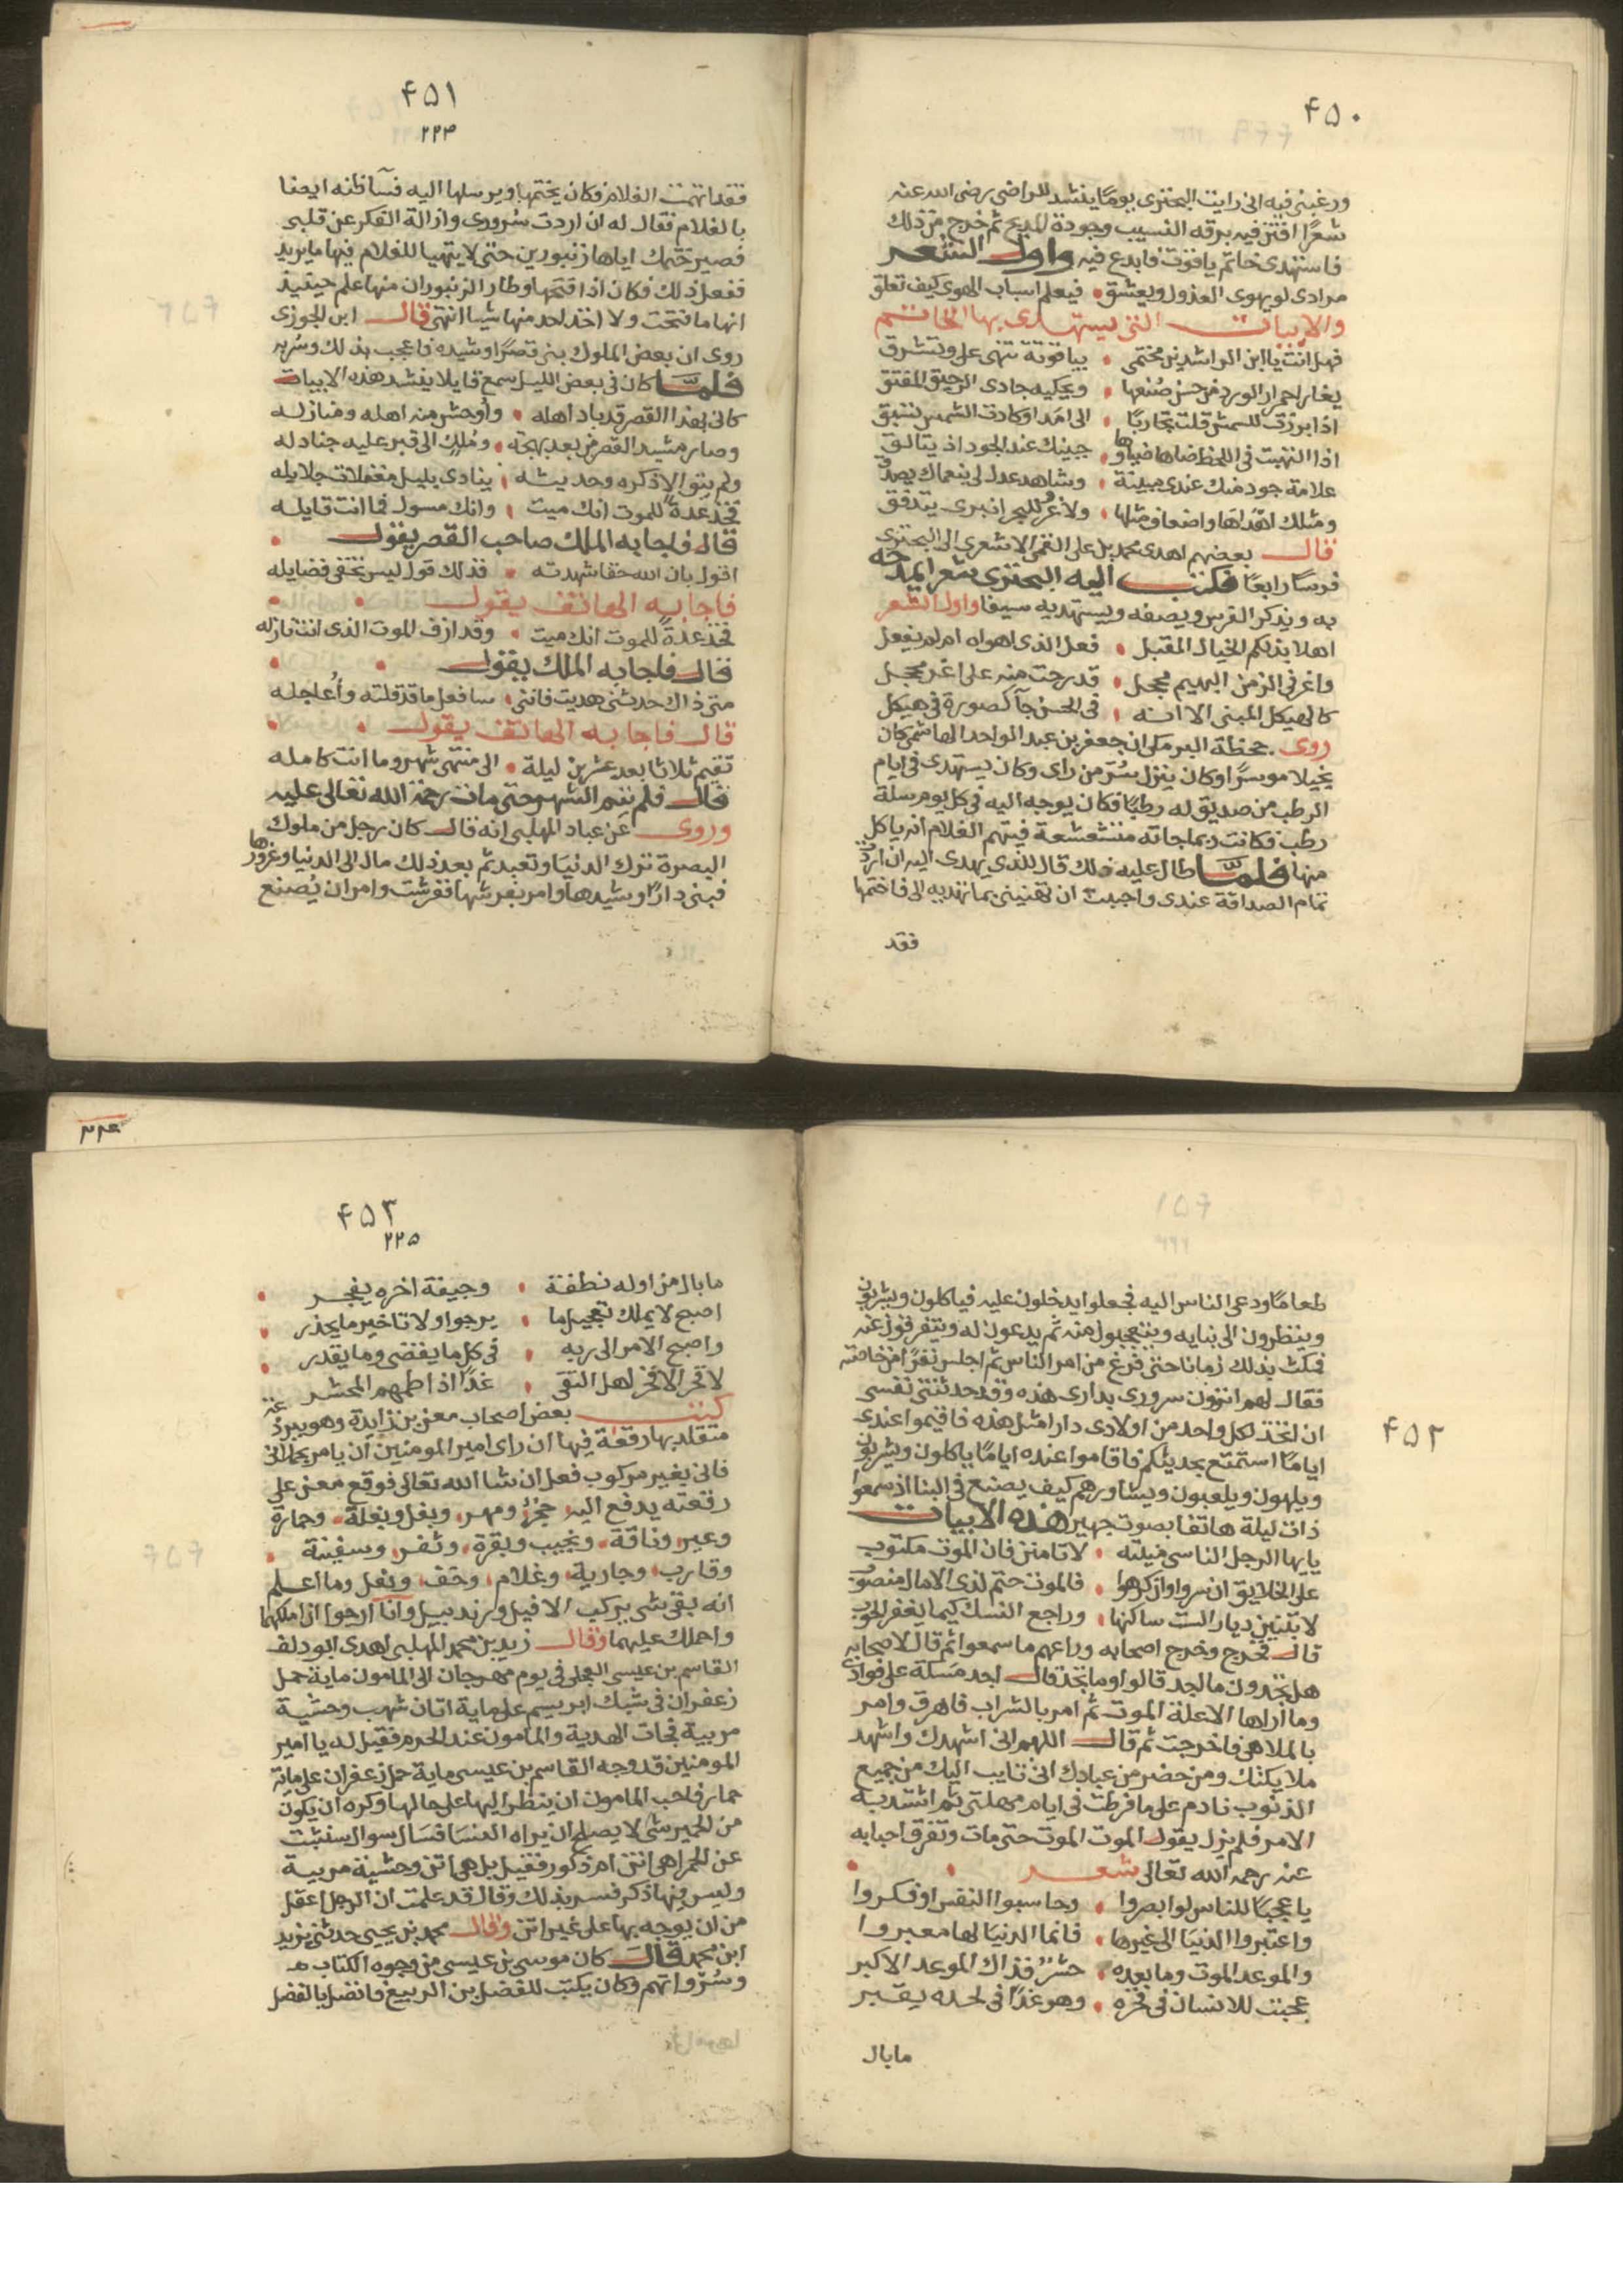 ۴۵۰
ورغبنى فيه انى رايت البحترى يومًا ينشد للراضى رضى الله عنه
شعرًا افتن فيه برقه النسيب وجودة المديح ثم خرج من ذلك
فاستهدى خاتم ياقوت فابدع فيه واول الشعر
مرادى لو يهوى العذول ويعشق فيعلم اسباب الهوى كيف تعلق
والابيات التى يستهدى بها الخاتم
فهل انت يا ابن الراشدين مختمى بياقوتة تبهى على وتشرق
يغار احمرار الورد من حسن صبغها ويحكيه جادى الرحيق المعتق
اذا برزت للشمس قلت تجاريًا الى امد او كادت الشمس تسبق
اذا التهبت فى اللحظ ضاها ضياوها جبينك عند الجود اذ يتالق
علامة جود منك عندى مبينة وشاهد عدل لى بنعماك يصدق
ومثلك اهداها واضعاف مثلها ولا غرو للبحر انبرى يتدفق
قال بعضهم اهدى محمد بن على القمى الاشعرى الى البحترى
فرسًا رابعًا فكتب اليه البحترى شعرا يمدحه
به ويذكر الفرس ويصفه ويستهديه سيفا واول الشعر
اهلا بذلكم الخيال المقبل فعل الذى اهواه ام لم يفعل
واغر فى الزمن البهيم محجل قد رحت منه على اغر محجل
كالهيكل المبنى الا انه فى الحسن جآ كصورة فى هيكل
روى جحظة البرمكى ان جعفر بن عبد الواحد الهاشمى كان
بخيلا موسرًا وكان ينزل بسُرّ من راى وكان يستهدى فى ايام
الرطب من صديق له رطبًا فكان يوجه اليه فى كل يوم سلة
رطب فكانت ربما جاته متشعشعة فيتهم الغلام انه ياكل
منها فلما طال عليه ذلك قال للذى يهدى اليه ان اردت
تمام الصداقة عندى واحببت ان تهنينى بما تهديه الى فاختمها
فقد
۴۵۱
۲۲۴
فقد اتهمت الغلام فكان يختمها ويرسلها اليه فسآ ظنه ايضا
بالغلام فقال له ان اردت سرورى وازالة الفكر عن قلبى
فصير ختمك اياها زنبورين حتى لا يتهيا للغلام فيها ما يريد
ففعل ذلك فكان اذا فتحها وطار الزنبوران منها علم حينيذ
انها ما فتحت ولا اخذ احد منها شيا انتهى قال ابن الجوزى
روى ان بعض الملوك بنى قصرًا وشيده فاعجب بذلك وسُر به
فلما كان فى بعض الليل سمع قايلا ينشد هذه الابيات
كانى بهذا القصر قد باد اهله واوحش منه اهله ومنازله
وصار مشيد القصر من بعد بهجة ومُلك الى قبر عليه جنادله
ولم يبق الا ذكره وحديثه ينادى بليل مغفلات جلايله
فخذ عُدةً للموت انك ميت وانك مسول فما انت قايله
قال فاجابه الملك صاحب القصر يقول
اقول بان الله حقا شهدته فذلك قول ليس تخفى فضايله
فاجابه الهاتف يقول
فخذ عدةً للموت انك ميت وقد ازف الموت الذى انت نازله
قال فاجابه الملك يقول
متى ذاك حدثنى هديت فاننى سافعل ما قد قلته وأُعاجله
قال فاجابه الهاتف يقول
تقيم ثلاثا بعد عشرين ليلة الى منتهى شهر وما انت كامله
قال فلم يتم الشهر حتى مات رحمة الله تعالى عليه
وروى عن عباد المهلبى انه قال كان رجل من ملوك
البصرة ترك الدنيا وتعبد ثم بعد ذلك مال الى الدنيا وغرورها
فبنى دارًا وشيدها وامر بفرشها ففرشت وامر ان يُصنع
۴۵۲
طعامًا ودعى الناس اليه فجعلوا يدخلون عليه فياكلون ويشربون
وينظرون الى بنايه ويتعجبون منه ثم يدعون له ويتفرقون عنه
فمكث بذلك زمانا حتى فرغ من امر الناس ثم اجلس نفرًا من خاصته
فقال لهم اترون سرورى بدارى هذه وقد حدثتنى نفسى
ان اتخذ لكل واحد من اولادى دارا مثل هذه فاقيموا عندى
ايامًا استمتع بحديثكم فاقاموا عنده ايامًا ياكلون ويشربون
ويلهون ويلعبون ويشاورهم كيف يصنع فى البنا اذ سمعوا
ذات ليلة هاتفا بصوت جهير هذه الابيات
يايها الرجل الناسى منيته لا تامنن فان الموت مكتوب
على الخلايق ان سروا وان كرهوا فالموت حتم لذى الامال منصوب
لا تبنين ديارا لست ساكنها وراجع النسك كيما يغفر الحوب
قال فخرج وخرج اصحابه وراعهم ما سمعوا ثم قال لاصحابه
هل تجدون ما اجد قالوا وما تجد قال اجد مسكة على فوادى
وما اراها الا علة الموت ثم امر بالشراب فاهرق وامر
بالملاهى فاخرجت ثم قال اللهم انى اشهدك واشهد
ملايكتك ومن حضر من عبادك انى تايب اليك من جميع
الذنوب نادم على ما فرطت فى ايام مهلتى ثم اشتد به
الامر فلم يزل يقول الموت الموت حتى مات وتفرق احبابه
عنه رحمه الله تعالى شعر
يا عجبًا للناس لو ابصروا وحاسبوا النفس او فكروا
واعتبروا الدنيا الى غيرها فانما الدنيا لها معبروا
والموعد الموت وما بعده حشرٌ فذاك الموعد الاكبر
عجبت للانسان فى فخره وهو غدًا فى لحده يقبر
مابال
۲۲۶
۴۵۳
۲۲۵
ما بال من اوله نطفة وجيفة اخره يفجر
اصبح لا يملك تعجيل ما يرجوا ولا تاخير ما يحذر
واصبح الامر الى ربه فى كل ما يقضى وما يقدر
لا فخر الا فخر لاهل التقى غدًا اذا اضمهم المحشر
كتب بعض اصحاب معن بن زايدة وهو
متقلد بها رقعة فيها ان راى امير المومنين ان يامر بحملانى
فانى بغير مركوب فعل ان شا الله تعالى فوقع معن على
رقعته يدفع اليه ومهر وبغل وبغلة وحمارة
وعير وناقة ونجيب وبقرة وسفينة
وقارب وجارية وغلام وخف ونعل وما اعلم
انه بقى شى يركب الا فيل وزندبيل وانا ارجوا ان املكهما
واحملك عليهما وقال زيد بن محمد المهلبى اهدى ابو دلف
القاسم بن عيسى العجلى فى يوم مهرجان الى المامون ماية حمل
زعفران فى شبك ابريسم على ماية اتان شهب وحشية
مربية فجات الهدية والمامون عند الحرم فقيل له يا امير
المومنين قد وجه القاسم بن عيسى ماية حمل زعفران على ماية
حمار فاحب المامون ان ينظر اليها على حالها وكره ان يكون
من الحمير شى لا يصلح ان يراه النسا فسال سوال
عن الحمر اهى اتن ام ذكور فقيل بل هى اتن وحشية مربية
وليس فيها ذكر فسر بذلك وقال قد علمت ان الرجل اعقل
من ان يوجه بها على غير اتن وقال محمد بن يحيى حدثنى يزيد
ابن محمد قال كان موسى بن عيسى من وجوه الكتاب
وسُرّواتهم وكان يكتب للفضل بن الربيع فاتصل بالفضل